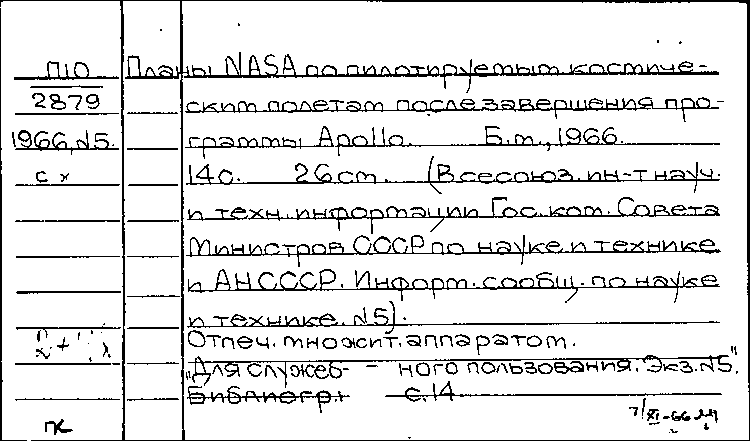 П10 Планы NASA по пилотируемым космиче-
2879 ским полетам после завершения про-
1966, №5. граммы Apollo. Б.м., 1966.
с х 14 с. 26 см. (Всесоюз. ин-т науч.
и техн. информации Гос. ком. Совета
Министров СССР по науке и технике
и АН СССР. Информ. сообщ. по науке
и технике. №5).
Отпеч. множит. аппаратом.
"Для служеб- - ного пользования. Экз. №5".
Библиогр.: с. 14.
7/XI-66